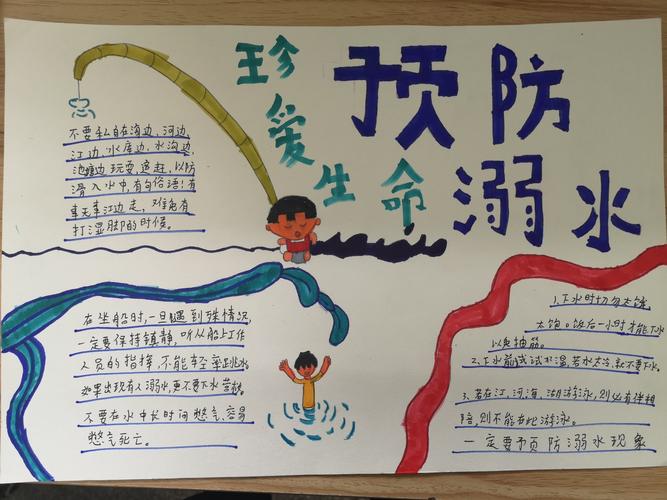 珍爱生命
预防
溺水
不要私自在海边、河边、
江边、水库边、水沟边、
池塘边玩耍、追赶,以防
滑入水中,有句俗语:有
事无事江边走,难免有
打湿脚的时候。
在坐船时,一旦遇到殊情况,
一定要保持镇静,听从船上工作
人员的指挥,不能轻率跳水。
如果出现有人溺水,更不要下水营救。
不要在水中长时间憋气,容易
憋气死亡。
1.下水时切勿太饿、
太饱。饭后一小时才能下水,
以免抽筋。
2.上水前或试水温,若水太冷,就不要下水。
3.若在江、河海、湖游泳,则必有伴相
陪,别不能去此游泳。
一定要予页防溺水现象